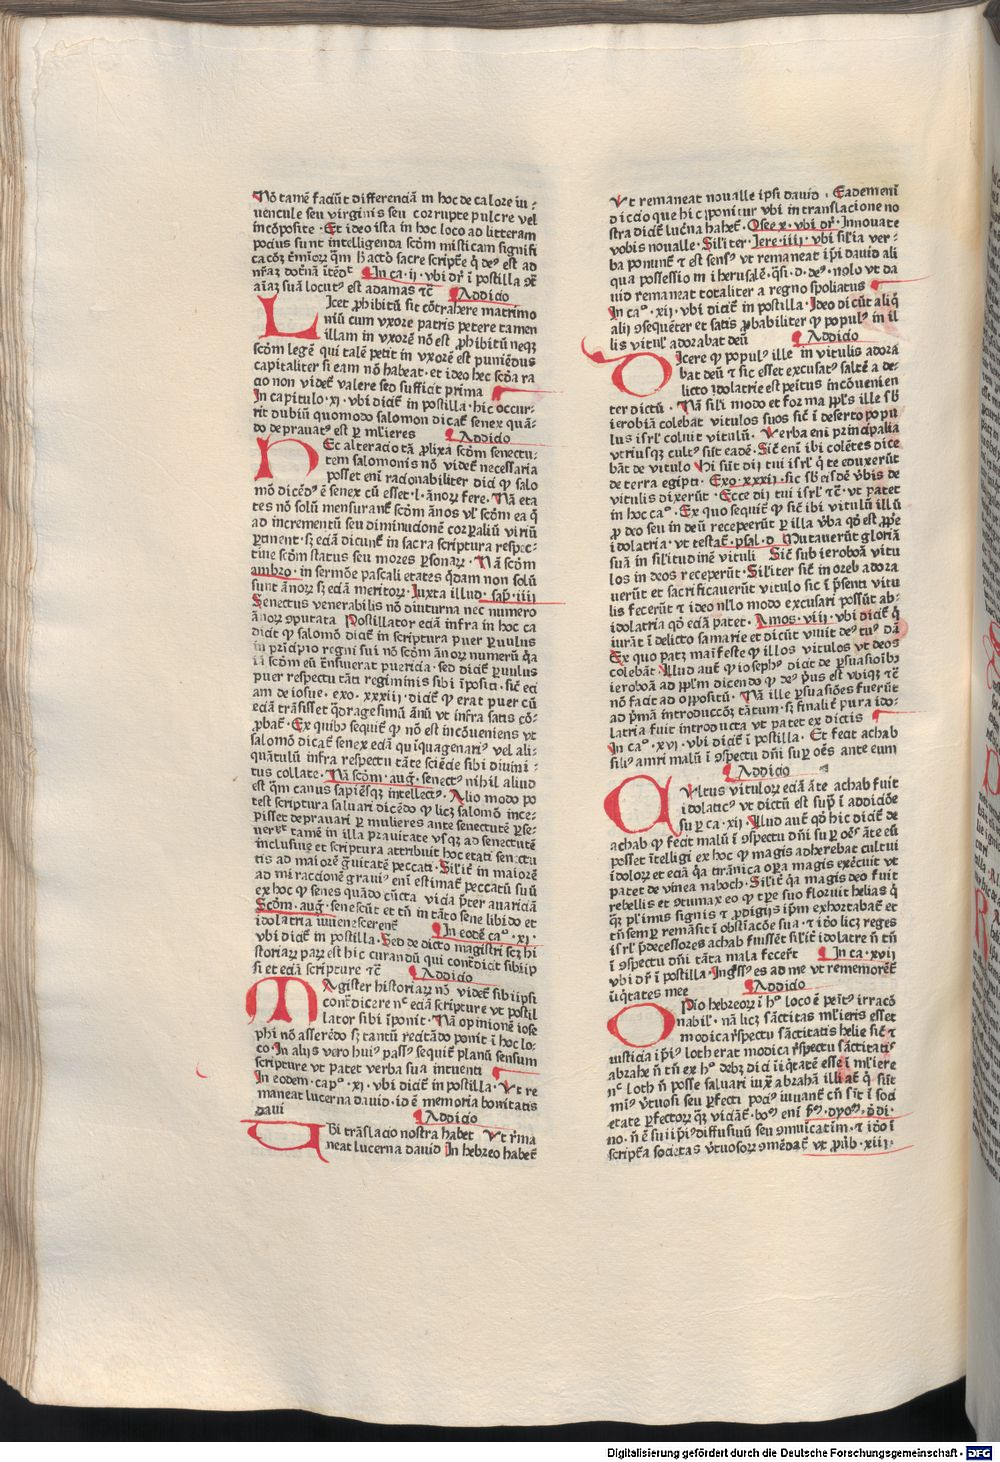 Nō tamē faciūt differenciā in hoc de calore iu⸗
uencule seu virginis seu corrupte pulcre vel
incōposite · Et ideo ista in hoc loco ad litteram
pocius sunt intelligenda scḋm misticam signifi
In ca · ij · vbi dr̄ ī postilla
aīaʒ suā locutꝰ est adamas ⁊c̄ Addicio
Licet ꝓhibitū sit cōtrahere matrimo
niū cum vxore patris petere tamen
illam in vxorē nō est ꝓhibitū neqʒ
scḋm legē qui talē petit in vxorē est puniēdus
capitaliter si eam nō habeat · et ideo hec scḋa ra
cio non videt̄ valere sed sufficit prima
In capitulo · xj · vbi dicit̄ in postilla · hic occur⸗
rit dubiū quomodo salomon dicat̄ senex quā⸗
do deprauatꝰ est ꝑ ml̄ieres Addicio
Hec alteracio tā ꝓlixa scḋm senectu⸗
tem salomonis nō videt̄ necessaria
posset enī racionabiliter dici ꝙ salo
mō dicēdꝰ ē senex cū esset · l · ānoꝝ fere · Nā eta
tes nō solū mensurant̄ scḋm ānos vl̓ scḋm ea q̄
ad incrementū seu diminucionē corꝑaliū viriū
ꝑtinent · sʒ eciā dicunt̄ in sacra scriptura respec⸗
tiue scḋm status seu mores ꝑsonaꝝ · Nā scḋm
ambro · in sermōe pascali etates q̄dam non solū
sunt ānoꝝ sʒ eciā meritoꝝ · Iuxta illud · sap̄ · iiij
Senectus venerabilis nō diuturna nec numero
ānoꝝ ꝯputata Postillator eciā infra in hoc ca
dicit ꝙ salomō dicit̄ in scriptura puer ꝑuulus
in prīcipio regni sui nō scḋm ānoꝝ numerū q̄a
iā scḋm eū trāsiuerat puericia · sed dicit̄ ꝑuulus
puer respectu tāti regiminis sibi īpositi · sic̄ eci
am de iosue · exo · xxxiij · dicit̄ ꝙ erat puer cū
eciā trāsisset q̄dragesimū ānū vt infra satis cō⸗
ꝓbat̄ · Ex quibꝰ sequit̄ ꝙ nō est incōueniens vt
salomō dicat̄ senex eciā quīquagenariꝰ vel ali⸗
quātulū infra respectu tāte sciēcie sibi diuini⸗
tus collate · Nā scḋm · auḡ · senectꝰ nihil aliud
est q̄m canus sapiēsqʒ intellectꝰ · Alio modo po
test scriptura saluari dicēdo ꝙ licʒ salomō ince⸗
pisset deprauari ꝑ mulieres ante senectutē ꝑse⸗
uerꝰt tamē in illa prauitate vsqʒ ad senectutē
inclusiue et scriptura attribuit hoc etati senectu
tis ad maiorē g̊uitatē peccati · Silit̄ in maiorē
ad miraccionē grauiꝰ enī estimat̄ peccatū suū
ex hoc ꝙ senes quādo cūcta vicia p̄ter auariciā
Scḋm · auḡ · senescūt et tn̄ in tāto sene libido et
idolatria iuuenescerent̄ In eodē caᵒ · xj ·
vbi dicit̄ in postilla · Sed de dicto magistri scʒ hi
storiaꝝ paꝝ est hic curandū qui contradicit sibiip
si et eciā scripture ⁊c̄ Addicio
Magister historiaꝝ nō videt̄ sibiipsi
contradicere nᶜ eciā scripture vt postil
lator sibi īponit · Nā opinionē iose
phi nō asserēdo sʒ tantū recitādo ponit ī hoc lo⸗
co · In alijs vero huiꝰ passꝰ sequit̄ planū sensum
scripture vt patet verba sua intuenti
In eodem · capᵒ · xj · vbi dicit̄ in postilla · Vt re
maneat lucerna dauid · id ē memoria bonitatis
daui Addicio
Vbi trāslacio nostra habet Vt r̄ma
neat lucerna dauid In hebreo habet̄
Vt remaneat noualle ipsi dauid · Eademenī
diccio que hic ꝯponitur vbi in translacione no
stra dicit̄ luc̄na habet̄ · Osee x · vbi dr̄ · Innouate
vobis noualle · Siliter · Iere · iiij · vbi sil̓ia ver⸗
ba ponunt̄ ⁊ est sensꝰ vt remaneat ip̄i dauid ali
qua possessio in iherusalē · q̄si · d · deꝰ · nolo vt da
uid remaneat totaliter a regno spoliatus
In caᵒ · xij · vbi dicit̄ in postilla · Ideo dicūt aliq̄
alij ꝯsequēter et satis ꝓbabiliter ꝙ populꝰ in il
lis vitul̓ adorabat deū Addicio
Dicere ꝙ populꝰ ille in vitulis adora
bat deū ⁊ sic esset excusatꝰ saltē a de⸗
licto idolatrie est peītus incōuenien
ter dictū · Nā sil̓i modo et forma ppl̓s ille sb̄
ieroboā colebat vitulos suos sic̄ ī deserto popu
lus isrl̓ coluit vitulū · Verba enī principalia
vtriusqʒ cultꝰ sūt eadē · Sic̄ enī ibi colētes dice
bāt de vitulo Hi sūt dij tui isrl̓ q̄ te eduxerūt
de terra egipti · Exo · xxxij · sic sb̄ eisdē v̄bis de
vitulis dixerūt · Ecce dij tui isrl̓ ⁊c̄ · vt patet
in hoc caᵒ · Ex quo sequit̄ ꝙ sic̄ ibi vitulū illū
ꝓ deo seu in deū receperūt ꝑ illa v̄ba qḋ est ꝓpͥe
idolatria · vt testat̄ · psal · d · Mutauerūt gloriā
suā in sil̓itudinē vituli Sic̄ sub ieroboā vitu
los in deos receperūt · Siliter sic̄ in oreb adora
uerūt et sacrificauerūt vitulo sic ī p̄senti vitu
lis fecerūt ⁊ ideo nl̓lo modo excusari possūt ab⸗
idolatria qḋ eciā patet · Amos · viij · vbi dicit̄ q̄
iurāt ī delicto samarie et dicūt viuit deꝰ tuꝰ dā
Ex quo patʒ maīfeste ꝙ illos vitulos vt deos
colebāt · Illud aut̄ ꝙ iosephꝰ dicit de ꝑsuasioībꝰ
ieroboā ad ppl̓m dicendo ꝙ deꝰ p̄ns est vbiqʒ ⁊c̄
nō facit ad oppositū · Nā ille ꝑsuasiōes fuerūt
ad p̄mā introduccōʒ tātum · sʒ finalit̄ pura ido⸗
latria fuit introducta vt patet ex dictis
In caᵒ · xvj · vbi dicit̄ ī postilla · Et fecit achab
filiꝰ amri malū ī ꝯspectu dn̄i suꝑ oēs ante eum
Addicio
Cultus vituloꝝ eciā āte achab fuit
idolaticꝰ vt dictū est supͣ ī addiciōe
suꝑ ca · xij · Illud aut̄ qḋ hic dicit̄ de
achab ꝙ fecit malū ī ꝯspectu dn̄i suꝑ oēꝰ āte eū
posset ītelligi ex hoc ꝙ magis adherebat cultui
idoloꝝ et eciā q̄a tirānica oꝑa magis exercuit vt
patet de vinea naboth · Silit̄ q̄a magis deo fuit
rebellis et ꝯtumax eo ꝙ tꝑe suo floruit helias q̄
qʒ pl̓imus signis ⁊ ꝓdigijs ip̄m exhortabat̄ et
tn̄ semꝑ remāsit ī obstīacōe sua · ⁊ idō licʒ reges
isrl̓ p̄decessores achab fuissēt silit̄ idolatre n̄ tn̄
ī ꝯspectu dn̄i tāta mala fecert̄ In ca · xvij
vbi dr̄ ī postilla · Ingr̄ssꝰ es ad me vt rememorēt̄
īiq̄tates mee Addicio
Opio hebreoꝝ ī hᵒ loco ē peītꝰ irracō
nabil̓ · nā licʒ sāctitas ml̓ieris esset
modica r̄spectu sāctitatis helie sic̄ ⁊
iusticia ip̄iꝰ loth erat modica r̄spectu sāctitatꝭ
abrahe n̄ tn̄ ex hᵒ debʒ dici īiq̄tatē esse ī ml̓iere
nᶜ loth n̄ posse saluari iuxͣ abrahā illi at̄ q̄ sūt
miꝰ v̄tuosi seu ꝑfecti pociꝰ iuuant̄ cū sīt ī soci
etate ꝑfectoꝝ
no · n̄ ē sui ip̄iꝰ diffusiuū seu ꝯmuīcatim · ⁊ idō ī
scriptͣa societas v̄tuosoꝝ ꝯmēdat̄ vt ꝓu̓b · xiij ·
Digitalisierung gefördert durch die Deutsche Forschungsgemeinschaft - DFG